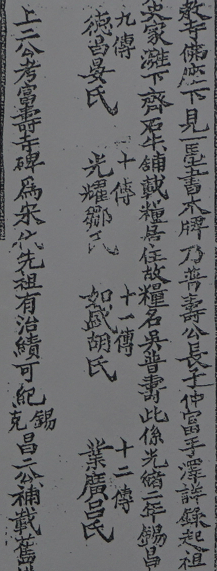 教寺佛座下見一長生書木牌乃普壽公長子仲富手澤詳錄起祖
吳家灘下齊石牛舖載糧居住故糧名吳普壽此係光緒二年錫昌
九傳 十傳 十一傳 十二傳
德昌晏氏 光耀鄒氏 如盛胡氏 業廣呂氏
上二公考富壽寺碑為宋代先祖有治績可紀錫克昌二公補載舊